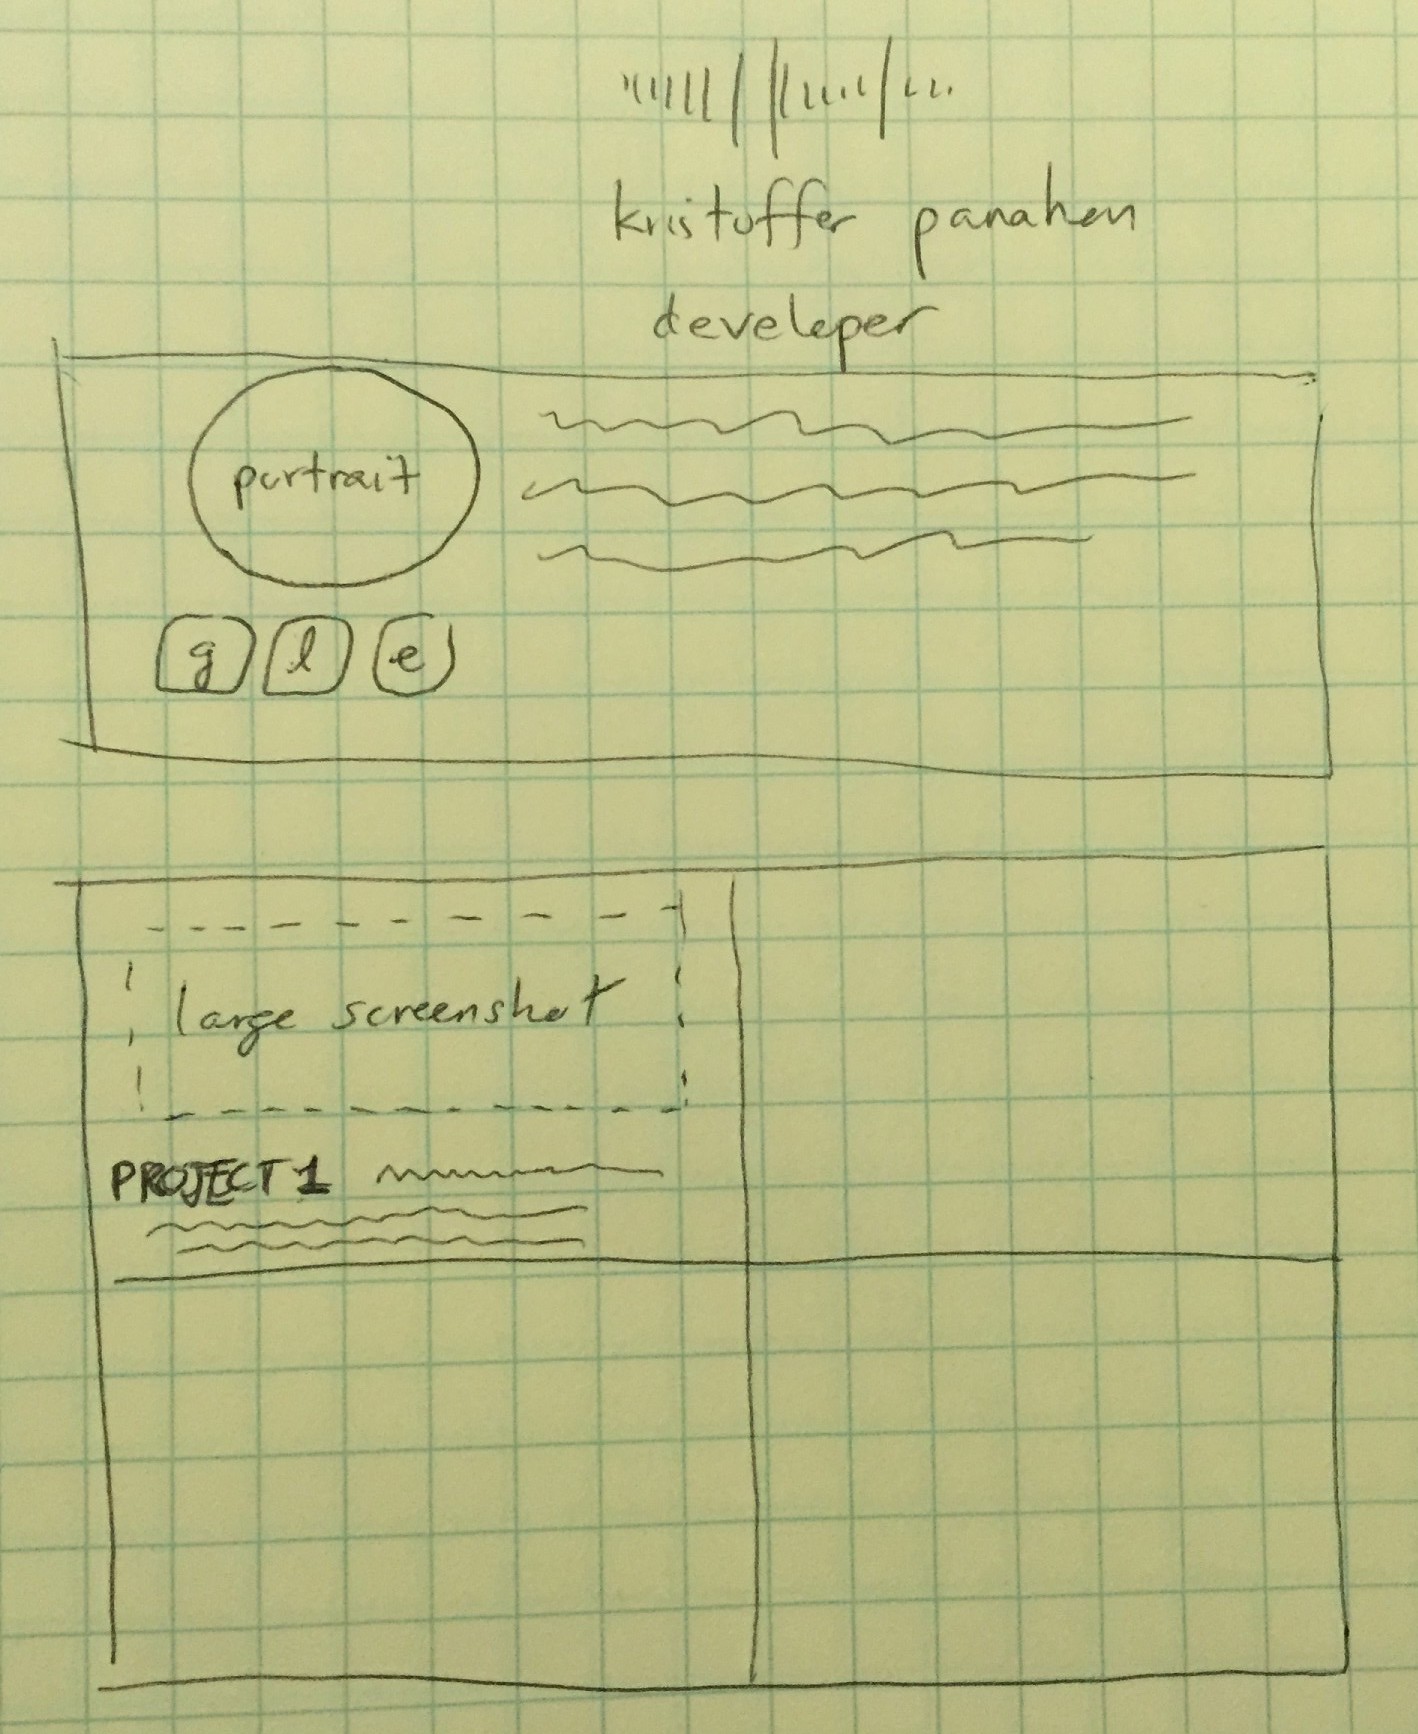 kristoffer panahon
developer
portrait
g l e
large screenshot
PROJECT 1